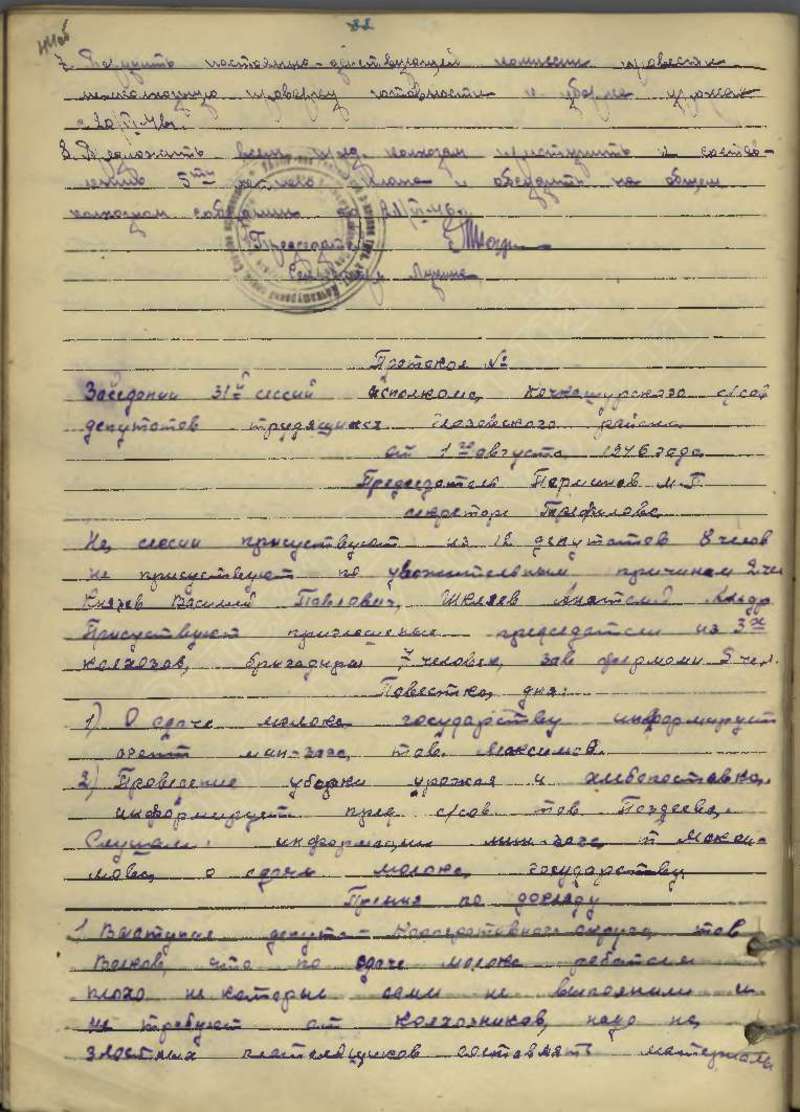 22
7. Поручить постоянно-действующей комиссии провести
межколхозную проверку готовности к уборке урожая
к 20/VI-46г.
8. Предложить всем пред. колхозам приступить к состав-
лению 5ти летнего плана и обсудить на общем
колхозном собрании до 21/VI-46г.
Председатель
Секретарь
Протокол №
Заседании 31й сессий исполкома, Кочкашурского с/сов
депутатов трудящихся Глазовского района
от 1го августа 1946 года
Председатель Перминов М.П.
секретарь Трефилова
На сессии присуствуют из 12 депутатов 8 челов
не присуствуют по уважительным причинам 2 че
Князев Василий Павлович, Шкляев Анатолий
Присуствуют приглашеные председатели из 3х
колхозов, бригадиры 7 человек, зав фермами 5 чел.
Повестка дня:
1) О сдаче молока государству информирует
агент мин-заг, тов. Максимов.
2) Проведение уборки урожая и хлебопоставка,
информирует пред с/сов тов Поздеева.
Слушали: информации мин-заг, т Макси-
мова, о сдачи молока, государству.
Прения по докладу
1 Выступил депута- Кооперативного округа тов
Волков, что по сдаче молока работаем
плохо некоторые сами не выполнили и
не требуют от колхозников, надо на
злостных плательщиков составлять материалы